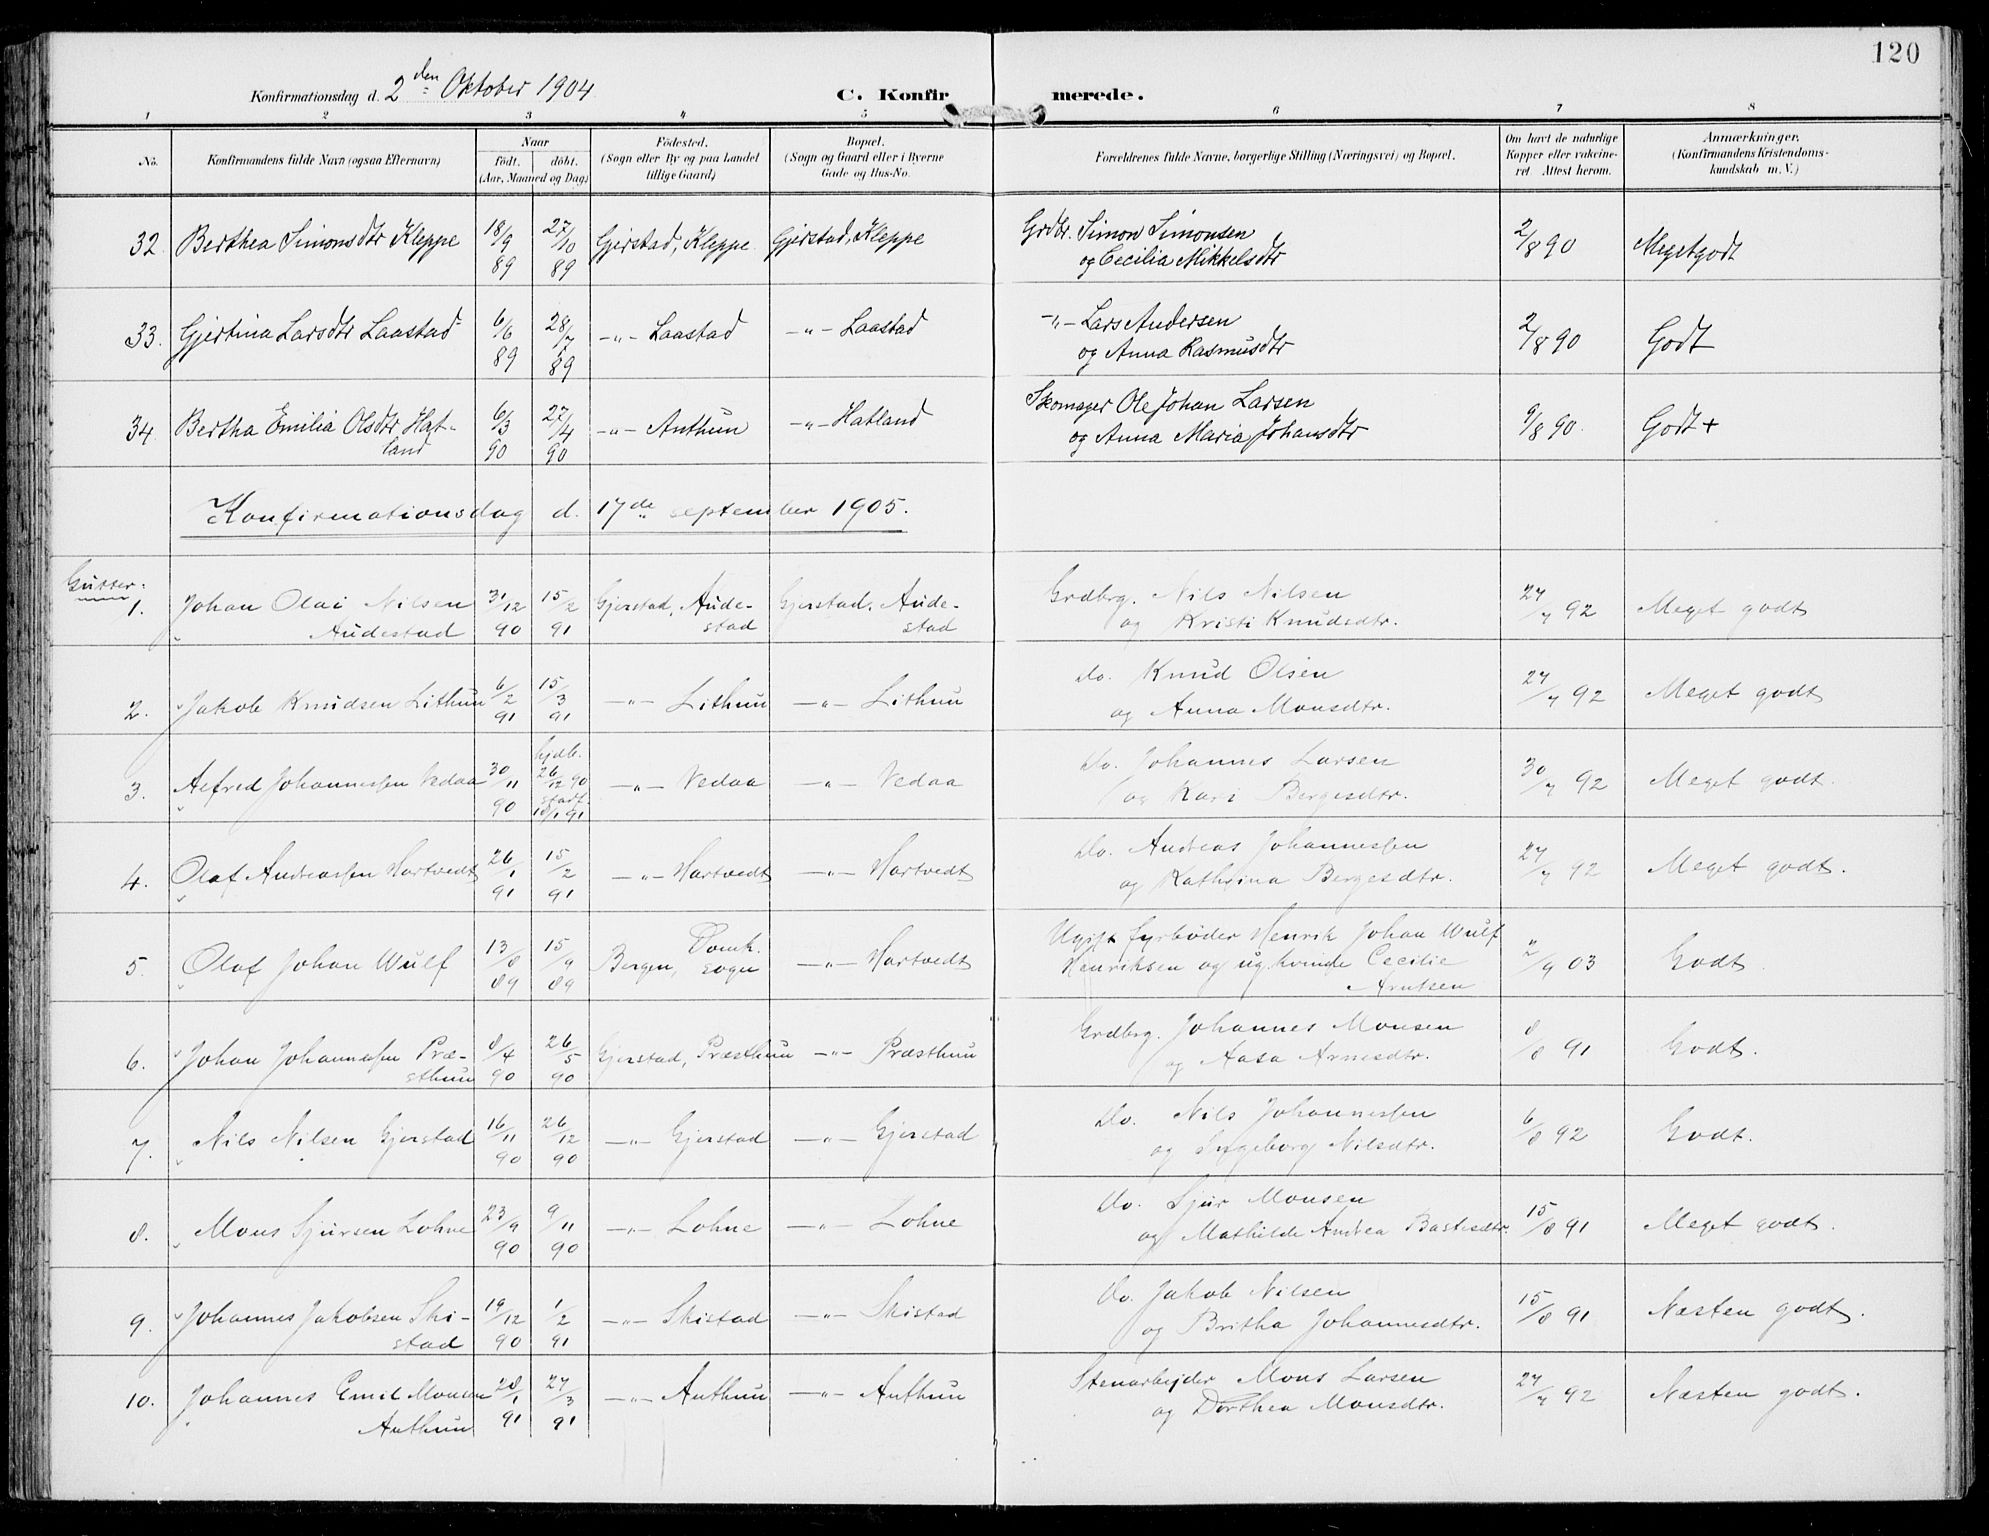 120
Konfirmationsdag d. 2den Oktober 1904
C. Konfirmerede.
1 2 3 4 5 6 7 8
No. Konfirmandens fulde Navn (ogsaa Efternavn) Naar födt. döbt. (Aar, Maaned og Dag) Födested. (Sogn eller By og paa Landet tillige Gaard) Bopæl. (Sogn og Gaard eller i Byerne Gade og Hus-No. Forældrenes fulde Navne, borgerlige Stilling (Næringsvei) og Bopæl. Om havt de naturlige Kopper eller vakcineret Attest herom. Anmærkninger. (Konfirmandens Kristendomskundskab m. V.)
32. Berthea Simonsdtr Kleppe 18/9 89 27/10 89 Gjerstad, Kleppe Gjerstad, Kleppe Grdbr. Simon Simonsen
og Cecilia Mikkelsdtr 2/8 90 Meget godt
33. Gjertina Larsdtr Laastad 6/6 89 28/7 89 -"- Laastad -"- Laastad -"- Lars Andersen
og Anna Rasmusdtr 2/8 90 Godt
34. Bertha Emilia Olsdtr Hat-
land 6/3 90 27/4 90 -"- Anthun -"- Hatland Skomager Ole Johan Larsen
og Anna Maria Johansdtr 9/8 90. Godt+
Konfirmationsdag d. 17de september 1905.
Gutter:
1. Johan Olai Nilsen
Audestad 31/12 90 15/2 91 Gjerstad, Aude-
stad Gjerstad, Aude-
stad Grdbrg. Nils Nilsen
og Kristi Knudsdtr. 27/7 92 Meget godt
2. Jakob Knudsen Lithun 6/2 91 15/3 91 -"- Lithun -"- Lithun Do. Knud Olsen
og Anna Monsdtr. 27/7 92 Meget godt
3. Alfred Johannessen Vedaa 30/11 90 hjdb. 26/12 90 stadf. 18/1 91 -"- Vedaa -"- Vedaa Do. Johannes Larsen
og Kari Bergesdtr. 30/7 92 Meget godt.
4. Olaf Andreassen Hartvedt 26/1 91 15/2 91 -"- Hartvedt -"- Hartvedt Do. Andreas Johannessen
og Kathrina Bergesdtr. 27/7 92 Meget godt.
5. Olaf Johan Wulf 13/8 89 15/9 89 Bergen, Domk.
sogn -"- Hartvedt Ugift fyrbøder Henrik Johan Wulf
Henriksen og ug. kvinde Cecilie
Arntsen /9 03 Godt.
6. Johan Johannessen Præ-
sthun 8/4 90 26/5 90 Gjerstad, Præsthun -"- Præsthun Grdbrg. Johannes Monsen
og Aasa Arnesdtr. 8/8 91 Godt.
7. Nils Nilsen Gjerstad 16/11 90 26/12 90 -"- Gjerstad -"- Gjerstad Do. Nils Johannessen
og Ingeborg Nilsdtr. 6/8 92 Godt.
8. Mons Sjursen Lohne 23/9 90 9/11 90 -"- Lohne -"- Lohne Do. Sjur Monsen
og Mathilde Andrea Bastesdtr. 15/8 91 Meget godt.
9. Johannes Jakobsen Ski-
stad 19/12 90 1/2 91 -"- Skistad -"- Skistad Do. Jakob Nilsen
og Britha Johannesdtr. 15/8 91 Næsten godt.
10. Johannes Emil Monsen
Anthun 28/1 91 27/3 91 -"- Anthun -"- Anthun Stenarbejder Mons Larsen
og Dorthea Monsdtr. 27/7 92 Næsten godt.